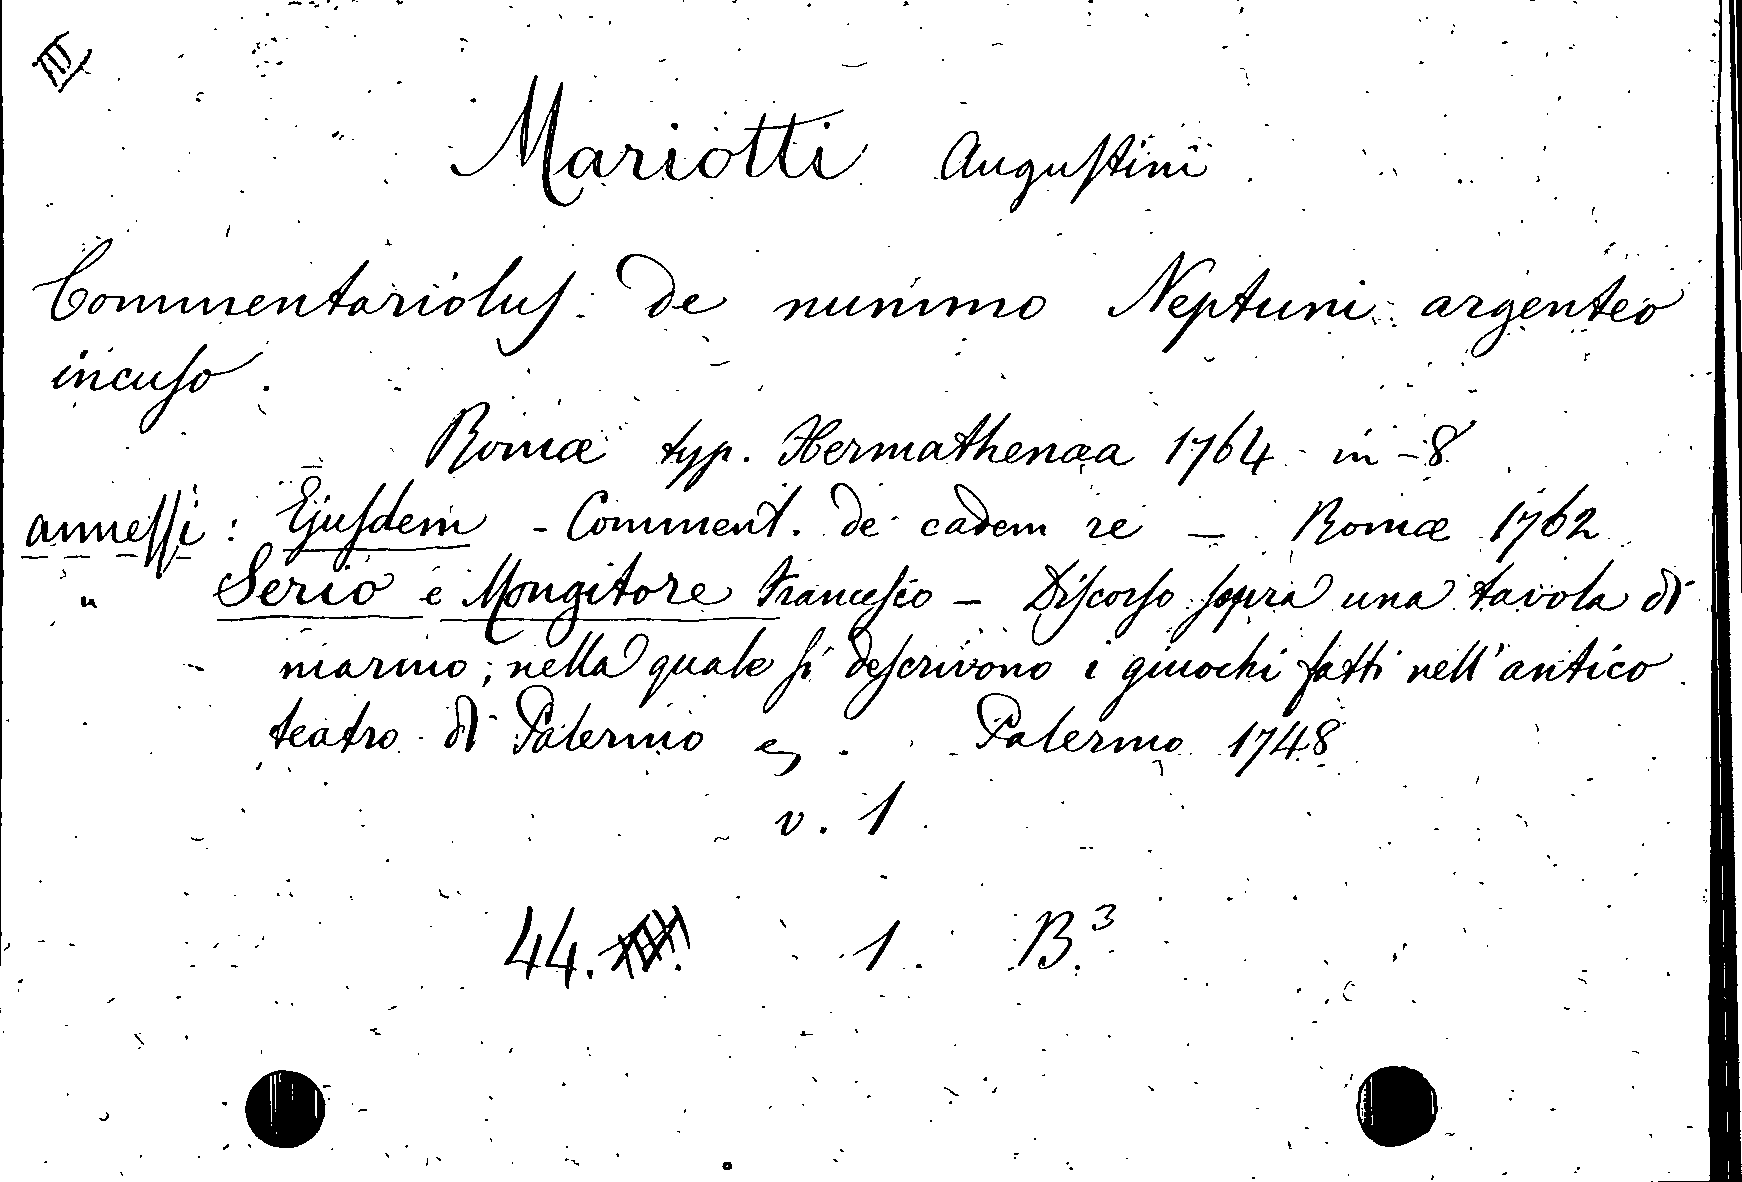 III
Mariotti Augustini
Commentariolus de nummo Neptuni argenteo
incuso.
Romæ typ. Hermathenæa 1764 in-8
annessi: Ejusdem - Comment. de eadem re - Romæ 1762
" Serio e Mongitore Francesco - Discorso sopra una tavola di
marmo; nella quale si descrivono i giuochi fatti nell'antico
teatro di Palermo . Palermo 1748
v. 1
44. 1. B.³